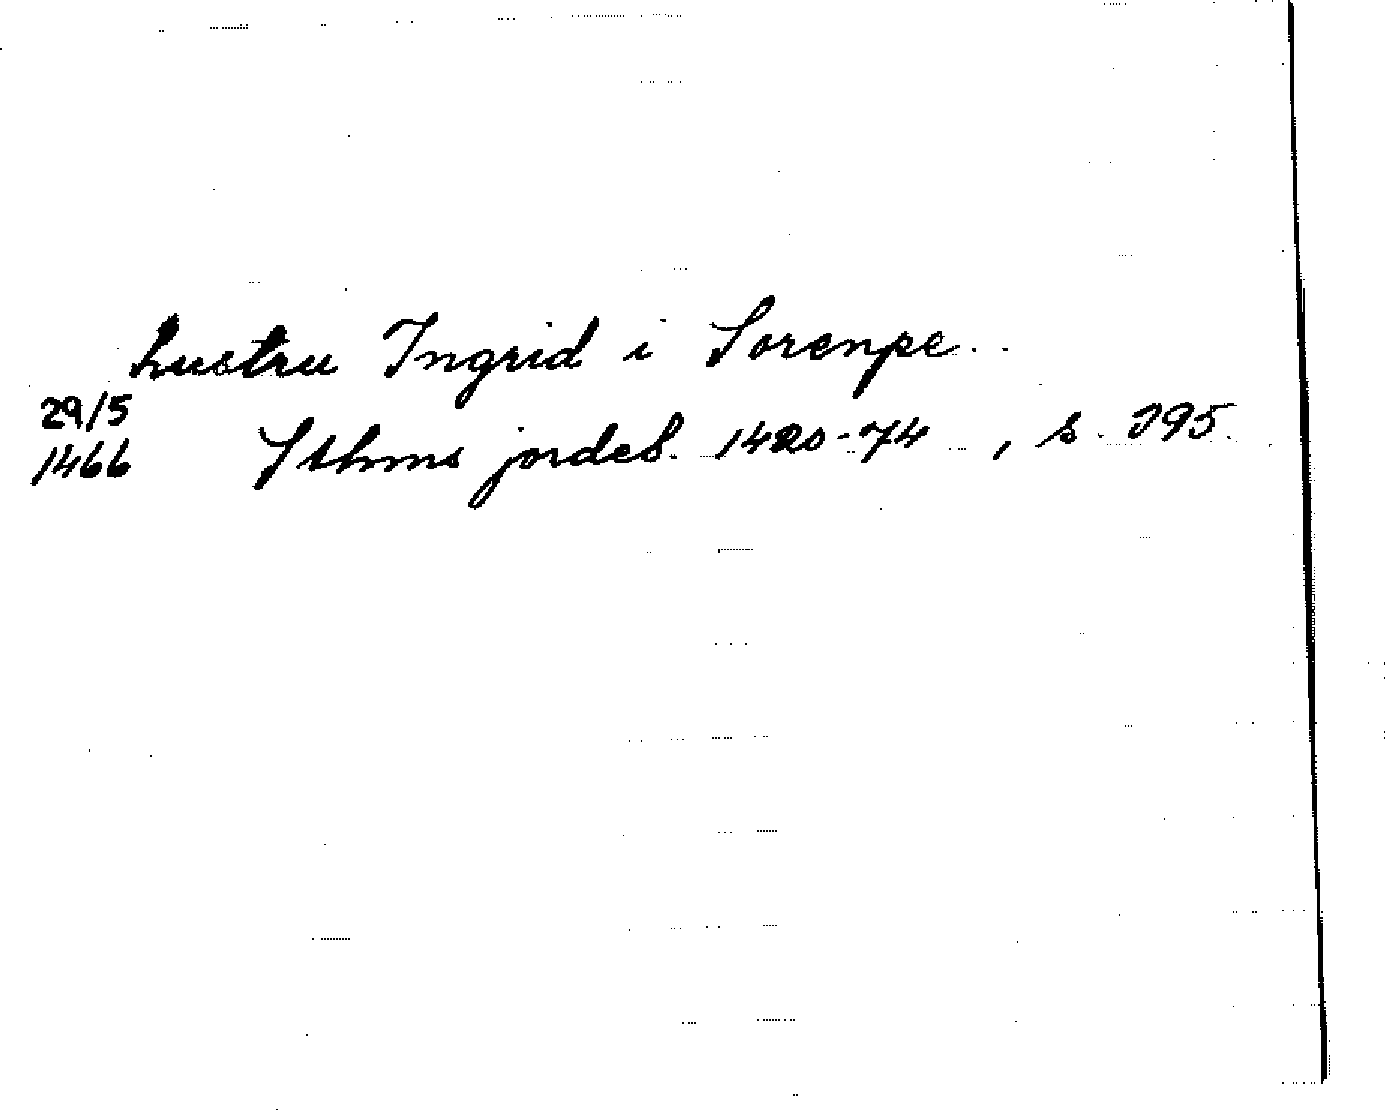 hustru Ingrid i Sorenpe.
29/5
1466 Sthms jordeb. 1420-74, s. 395.